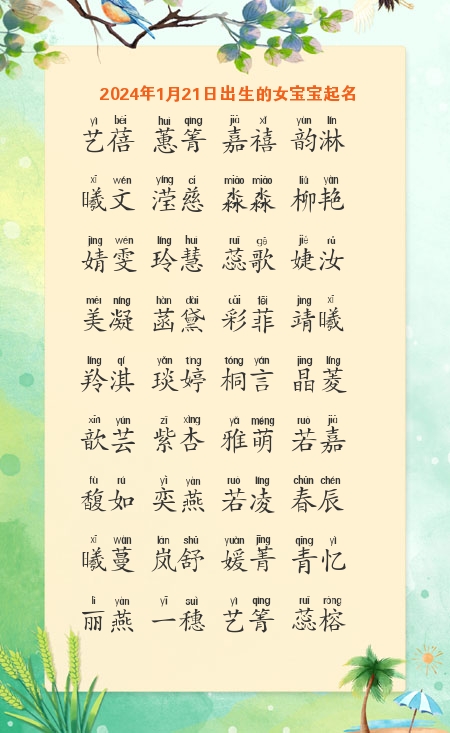 2024年1月21日出生的女宝宝起名
yì bèi huì qìng jiā xǐ yùn lín
艺蓓 蕙箐 嘉禧 韵淋
xī wén yíng cí miǎo miǎo liǔ yàn
曦文 滢慈 淼淼 柳艳
jìng wén líng huì ruǐ gē jié rǔ
婧雯 玲慧 蕊歌 婕汝
měi níng hàn dài cǎi fēi jìng xī
美凝 菡黛 彩菲 靖曦
líng qí yǎn tíng tóng yán jīng líng
羚淇 琰婷 桐言 晶菱
xīn yún zǐ xìng yǎ méng ruò jiā
歆芸 紫杏 雅萌 若嘉
fù rú yì yàn ruò líng chūn chén
馥如 奕燕 若凌 春辰
xī wàn lán shū yuàn jīng qīng yì
曦蔓 岚舒 媛菁 青忆
lì yàn yī suì yì qìng ruǐ róng
丽燕 一穗 艺箐 蕊榕